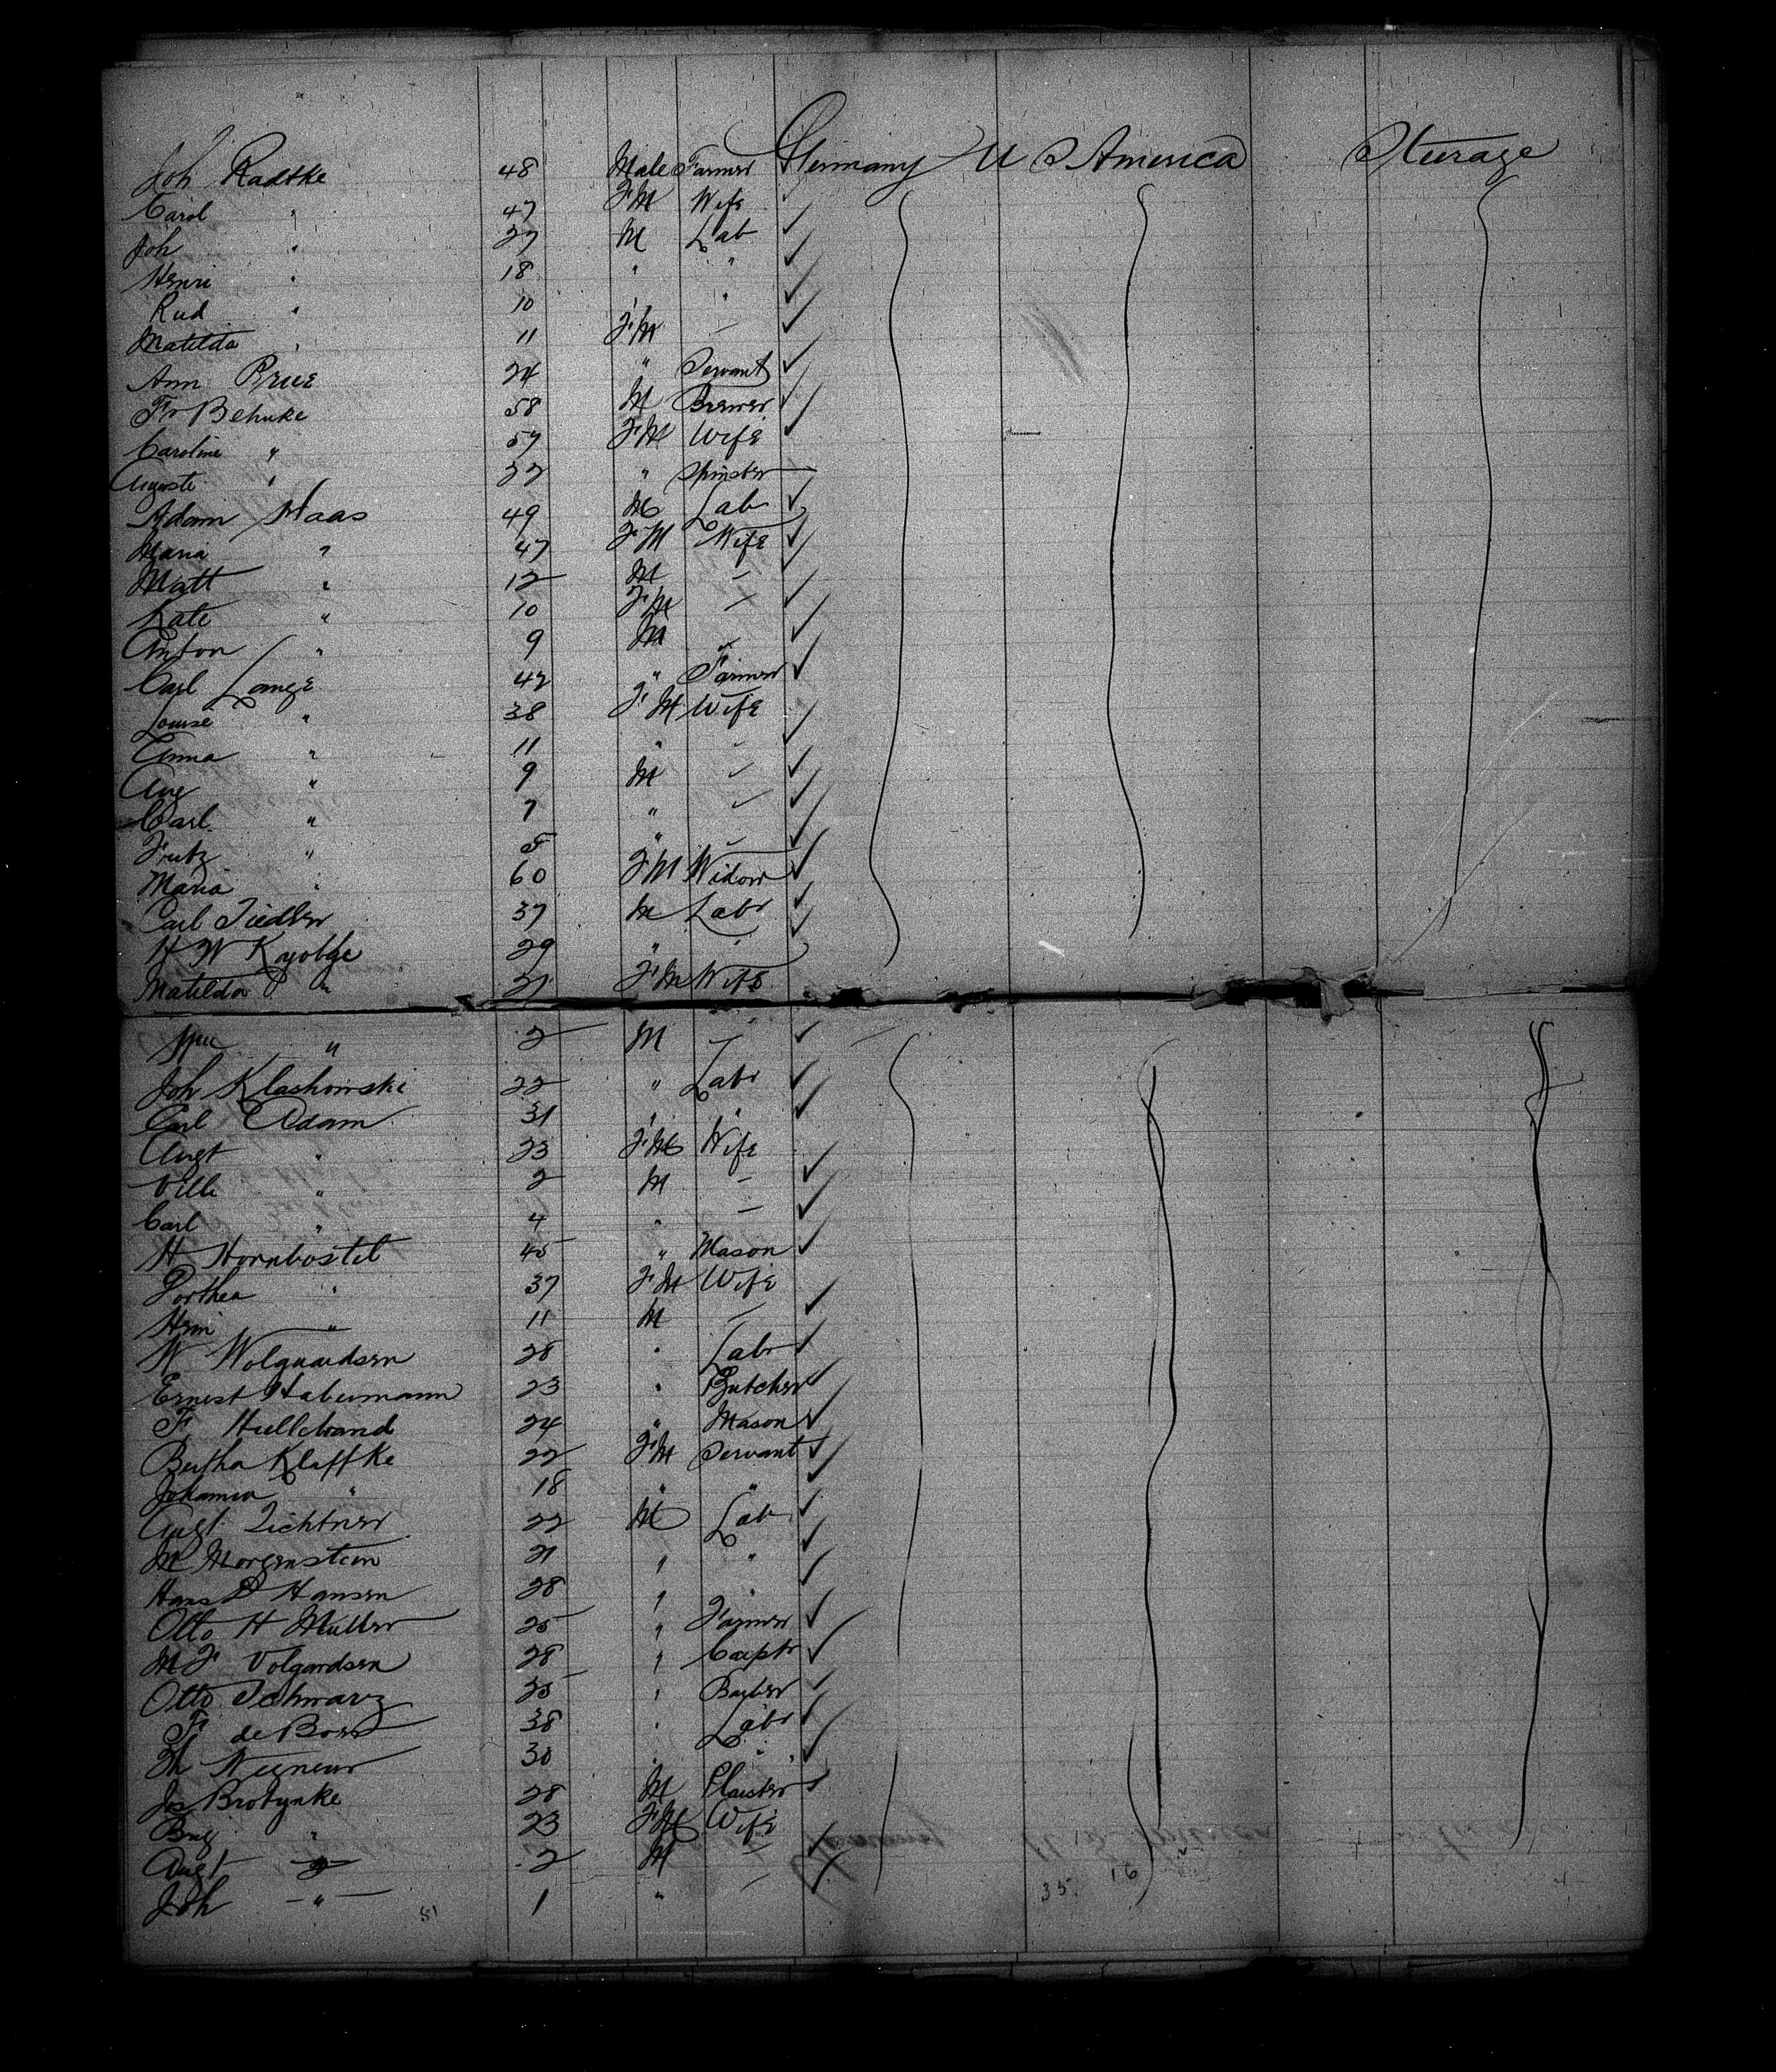 Joh Radtke 48 Male Farmer Germany U S America Steerage
Carol " 47 FM Wife
Joh " 27 M Lab
Henri " 18 " "
Rud " 10 "
Matilda " 11 FM —
Ann Brue 24 " Servant
Fr Behnke 58 M Brewer
Caroline " 57 FM Wife
Auguste " 22 " Spinster
Adam Haas 49 M Lab
Maria " 47 FM Wife
Matt " 12 M —
Kate " 10 FM —
Anton " 9 M
Carl Lange 42 " Farmer
Louise " 38 FM Wife
Anna " 11 " —
Aug " 9 M
Carl " 7 "
Fritz " 5 " —
Maria " 60 FM Widow
Carl Fiedler 37 M Labr
H W 29 " "
Matilda " 31 FM Wife
" 2 M —
Joh Klashowski 22 " Labr
Carl Adam 31 " "
Augt " 23 FM Wife
Villi " 2 M —
Carl " 4 " —
H Hornbostel 45 " Mason
Dorthea " 37 FM Wife
Hein " 11 M —
W Wolguardsen 28 " Labr
Ernest Habermann 23 " Butcher
Fr Hullebrand 24 " Mason
Bertha Klaffke 22 FM Servant
Johanna " 18 " "
Augt Lichtner 22 M Lab
M Morgenstein 21 " "
Hans P Hansen 28 " "
Otto H Muller 25 " Farmer
M F Volgardsen 28 " Carptr
Otto Schwarz 25 " Barber
Fr de Boer 38 " Labr
Th 30 " "
Jos Brotynke 28 M Plaister
" 23 FM Wife
Augt " 2 M —
Joh — " — 1 " —
51 35 16